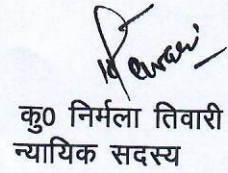 कु0 निर्मला तिवारी
न्यायिक सदस्य